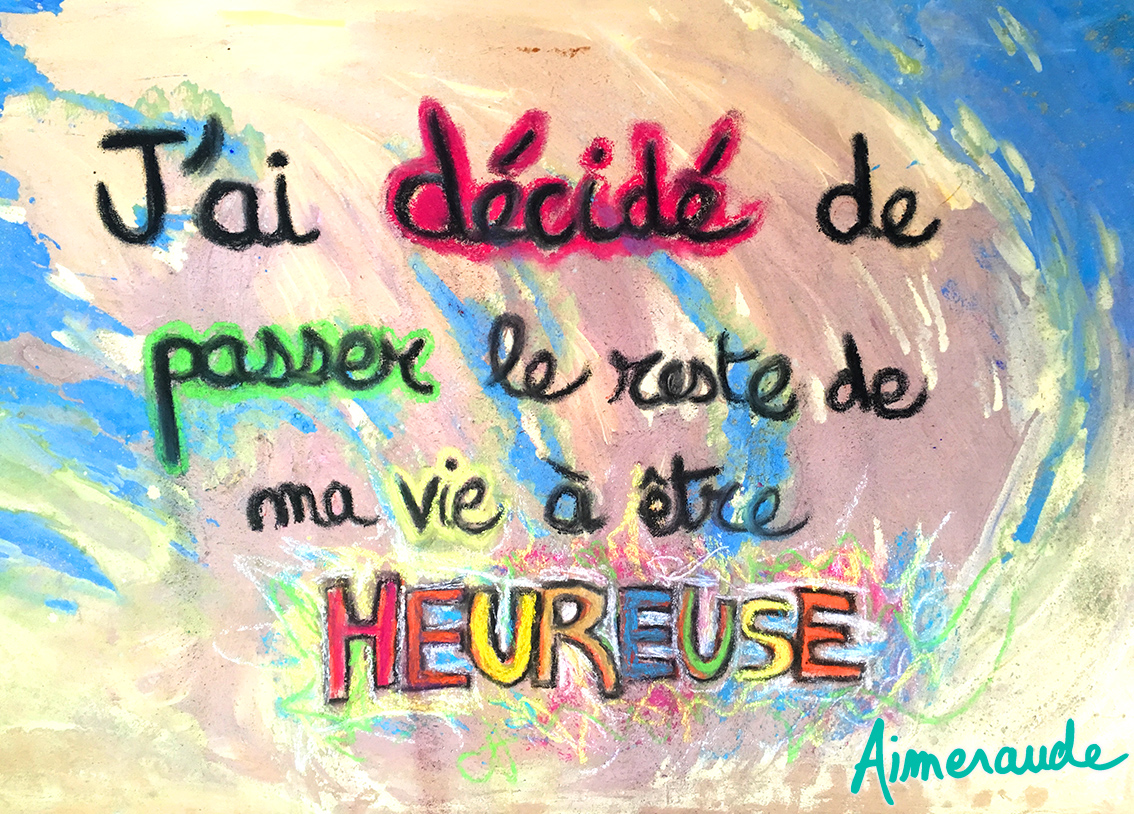 J'ai décidé de
passer le reste de
ma vie à être
HEUREUSE
Aimeraude